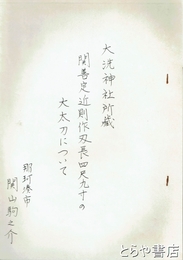 大洗神社所蔵
関善定近則作刃長四尺九寸の
大太刀について
那珂湊市
関山駒之介
とらや書店